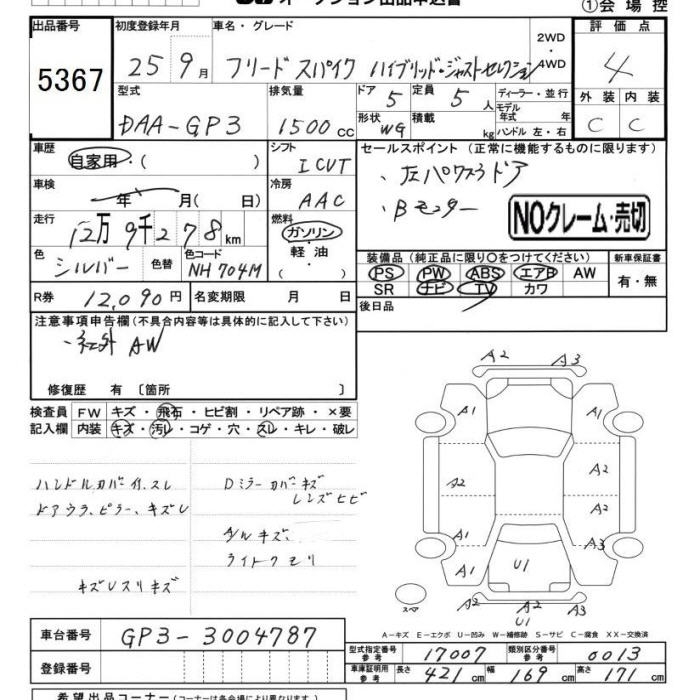 オークション出品申込書
①会場控
出品番号 初度登録年月 車名・グレード 評価点
5367 25 9月 フリード スパイク ハイブリッド・ジャストセレクション 2WD・4WD 4
型式 排気量 ドア 定員 ディーラー・並行 外装 内装
DAA-GP3 1500cc 5 5人 モデル年式 年 C C
形状 WG 積載 kg ハンドル 左・右
車歴 自家用・( ) シフト ICVT セールスポイント (正常に機能するものに限ります)
車検 年 月( 日) 冷房 AAC ・左パワスラドア
走行 12万9千278km 燃料 ガソリン・軽油・ ・Bモニター NOクレーム・売切
色 シルバー 色替 色コード NH704M
装備品 (純正品に限り○をつけてください) 新車保証書
PS PW ABS エアB AW 有・無
SR ナビ TV カワ
R券 12,090円 名変期限 月 日 後日品
注意事項申告欄(不具合内容等は具体的に記入して下さい)
・社外 AW
修復歴 有〔箇所 〕
検査員 FW キズ・飛石・ヒビ割・リペア跡・×要
記入欄 内装 キズ・汚レ・コゲ・穴・スレ・キレ・破レ
ハンドルカバー付、スレ Dミラーカバーキズ
レンズヒビ
ドアウラ、ピラー、キズU
A/Wキズ
ライトクモリ
キズUスリキズ
A2 A3
A1 A1
A2 A2
A2
A1 A3
A1 U1 A1
スペア
A2 A3
U1
A－キズ E－エクボ U－凹み W－補修跡 S－サビ C－腐食 XX－交換済
車台番号 GP3-3004787
型式指定番号 参考 17007 類別区分番号 参考 0013
登録番号
車庫証明用 参考 長さ 421cm 幅 169cm 高さ 171cm
希望出品コーナー(コーナーは各会場により異なります。)